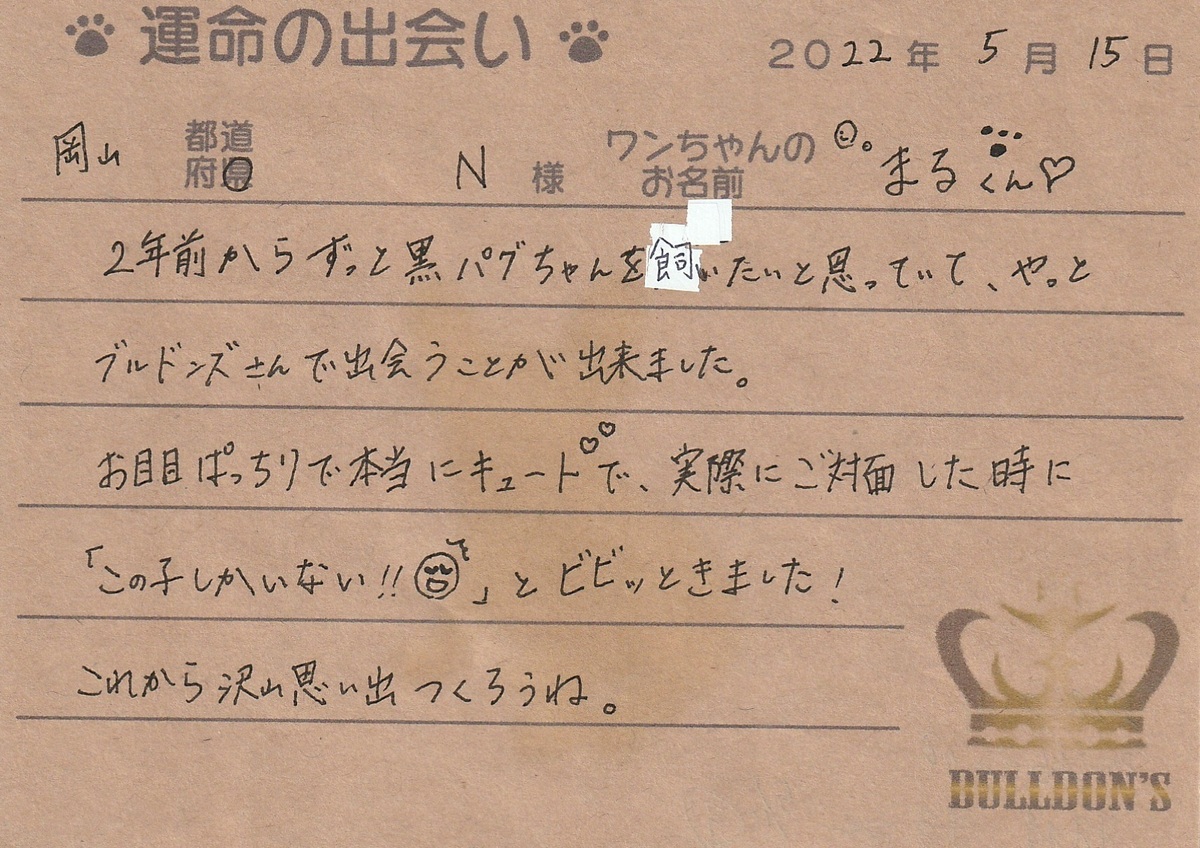 運命の出会い
2022年 5月 15日
岡山 都道府県 N 様 ワンちゃんのお名前 まるくん♡
2年前からずっと黒パグちゃんを飼いたいと思っていて、やっと
ブルドンズさんで出会うことが出来ました。
お目目ぱっちりで本当にキュート♡♡で、実際にご対面した時に
「この子しかいない!!」とビビッときました!
これから沢山思い出つくろうね。
BULLDON'S